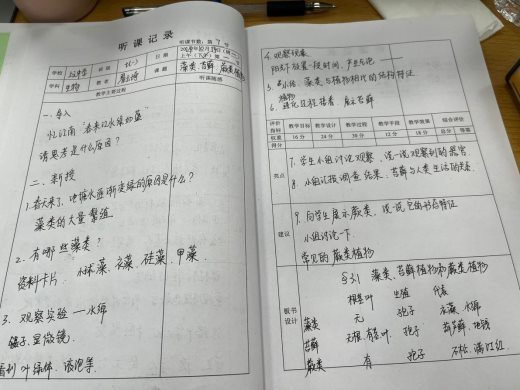 听课记录
听课节数: 第 7 号
学校
班级
七(一)
日期
学科
生物
姓名
课题
藻类、苔藓、蕨类植物
教学主要过程
听课随感
一、导入
忆江南 "春来江水绿如蓝"
请思考是什么原因?
二、新授
1. 春天来了,池塘水逐渐变绿的原因是什么?
藻类的大量繁殖
2. 有哪些藻类?
资料卡片. 小球藻、衣藻、硅藻、甲藻
3. 观察实验 — 水绵
镊子、显微镜.
看到 叶绿体、液泡等.
4. 观察现象
阳光下放置一段时间,产生气泡
5. 小结 藻类与植物相似的结构特征
评价指标
教学目标
教学设计
教学过程
教学手段
教学效果
综合评价
权重
16分
24分
30分
12分
18分
总分
等第
得分
亮点
7. 学生小组讨论观察,说一说观察到的器官
8. 小组汇报调查结果,苔藓与人类生活的关系
建议
9. 向学生展示蕨类,说一说它的形态特征
小组讨论一下
常见的蕨类植物
板书设计
§3.1 藻类、苔藓植物和蕨类植物
根茎叶 生殖 代表
藻类 无 孢子 衣藻、水绵
苔藓 无根、有茎叶 孢子 葫芦藓、地钱
蕨类 有 孢子 满江红